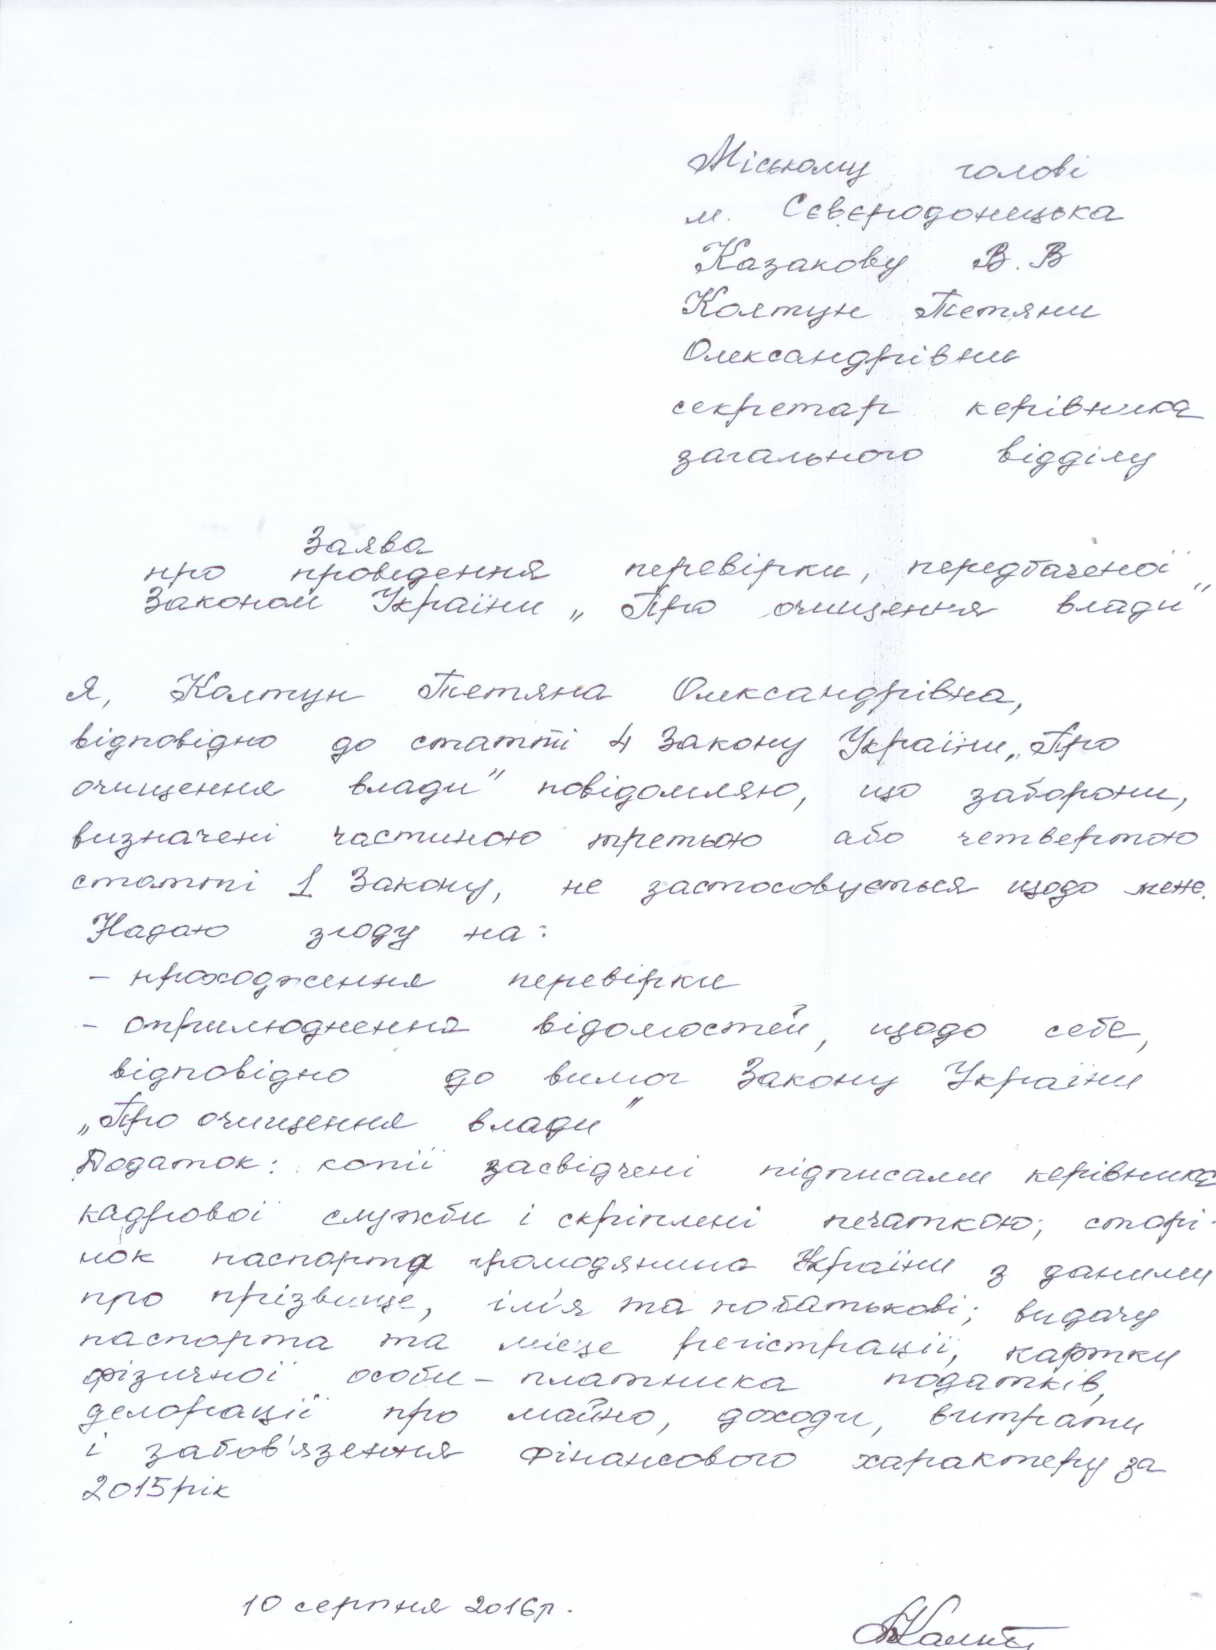 Міському голові
м. Сєвєродонецька
Казакову В. В
Колтун Тетяни
Олександрівни
секретар керівника
загального відділу
Заява
про проведення перевірки, передбаченої
Законом України „Про очищення влади"
Я, Колтун Тетяна Олександрівна,
відповідно до статті 4 Закону України „Про
очищення влади" повідомляю, що заборони,
визначені частиною третьою або четвертою
статті 1 Закону, не застосовується щодо мене.
Надаю згоду на:
- проходження перевірки
- оприлюднення відомостей, щодо себе,
відповідно до вимог Закону України
„Про очищення влади"
Додаток: копії засвідчені підписами керівника
кадрової служби і скріплені печаткою; сторі-
нок паспорта громадянина України з даними
про прізвище, ім'я та побатькові; видачу
паспорта та місце регістрації, картки
фізичної особи - платника податків,
декларації про майно, доходи, витрати
і забов'язення фінансового характеру за
2015 рік
10 серпня 2016р.